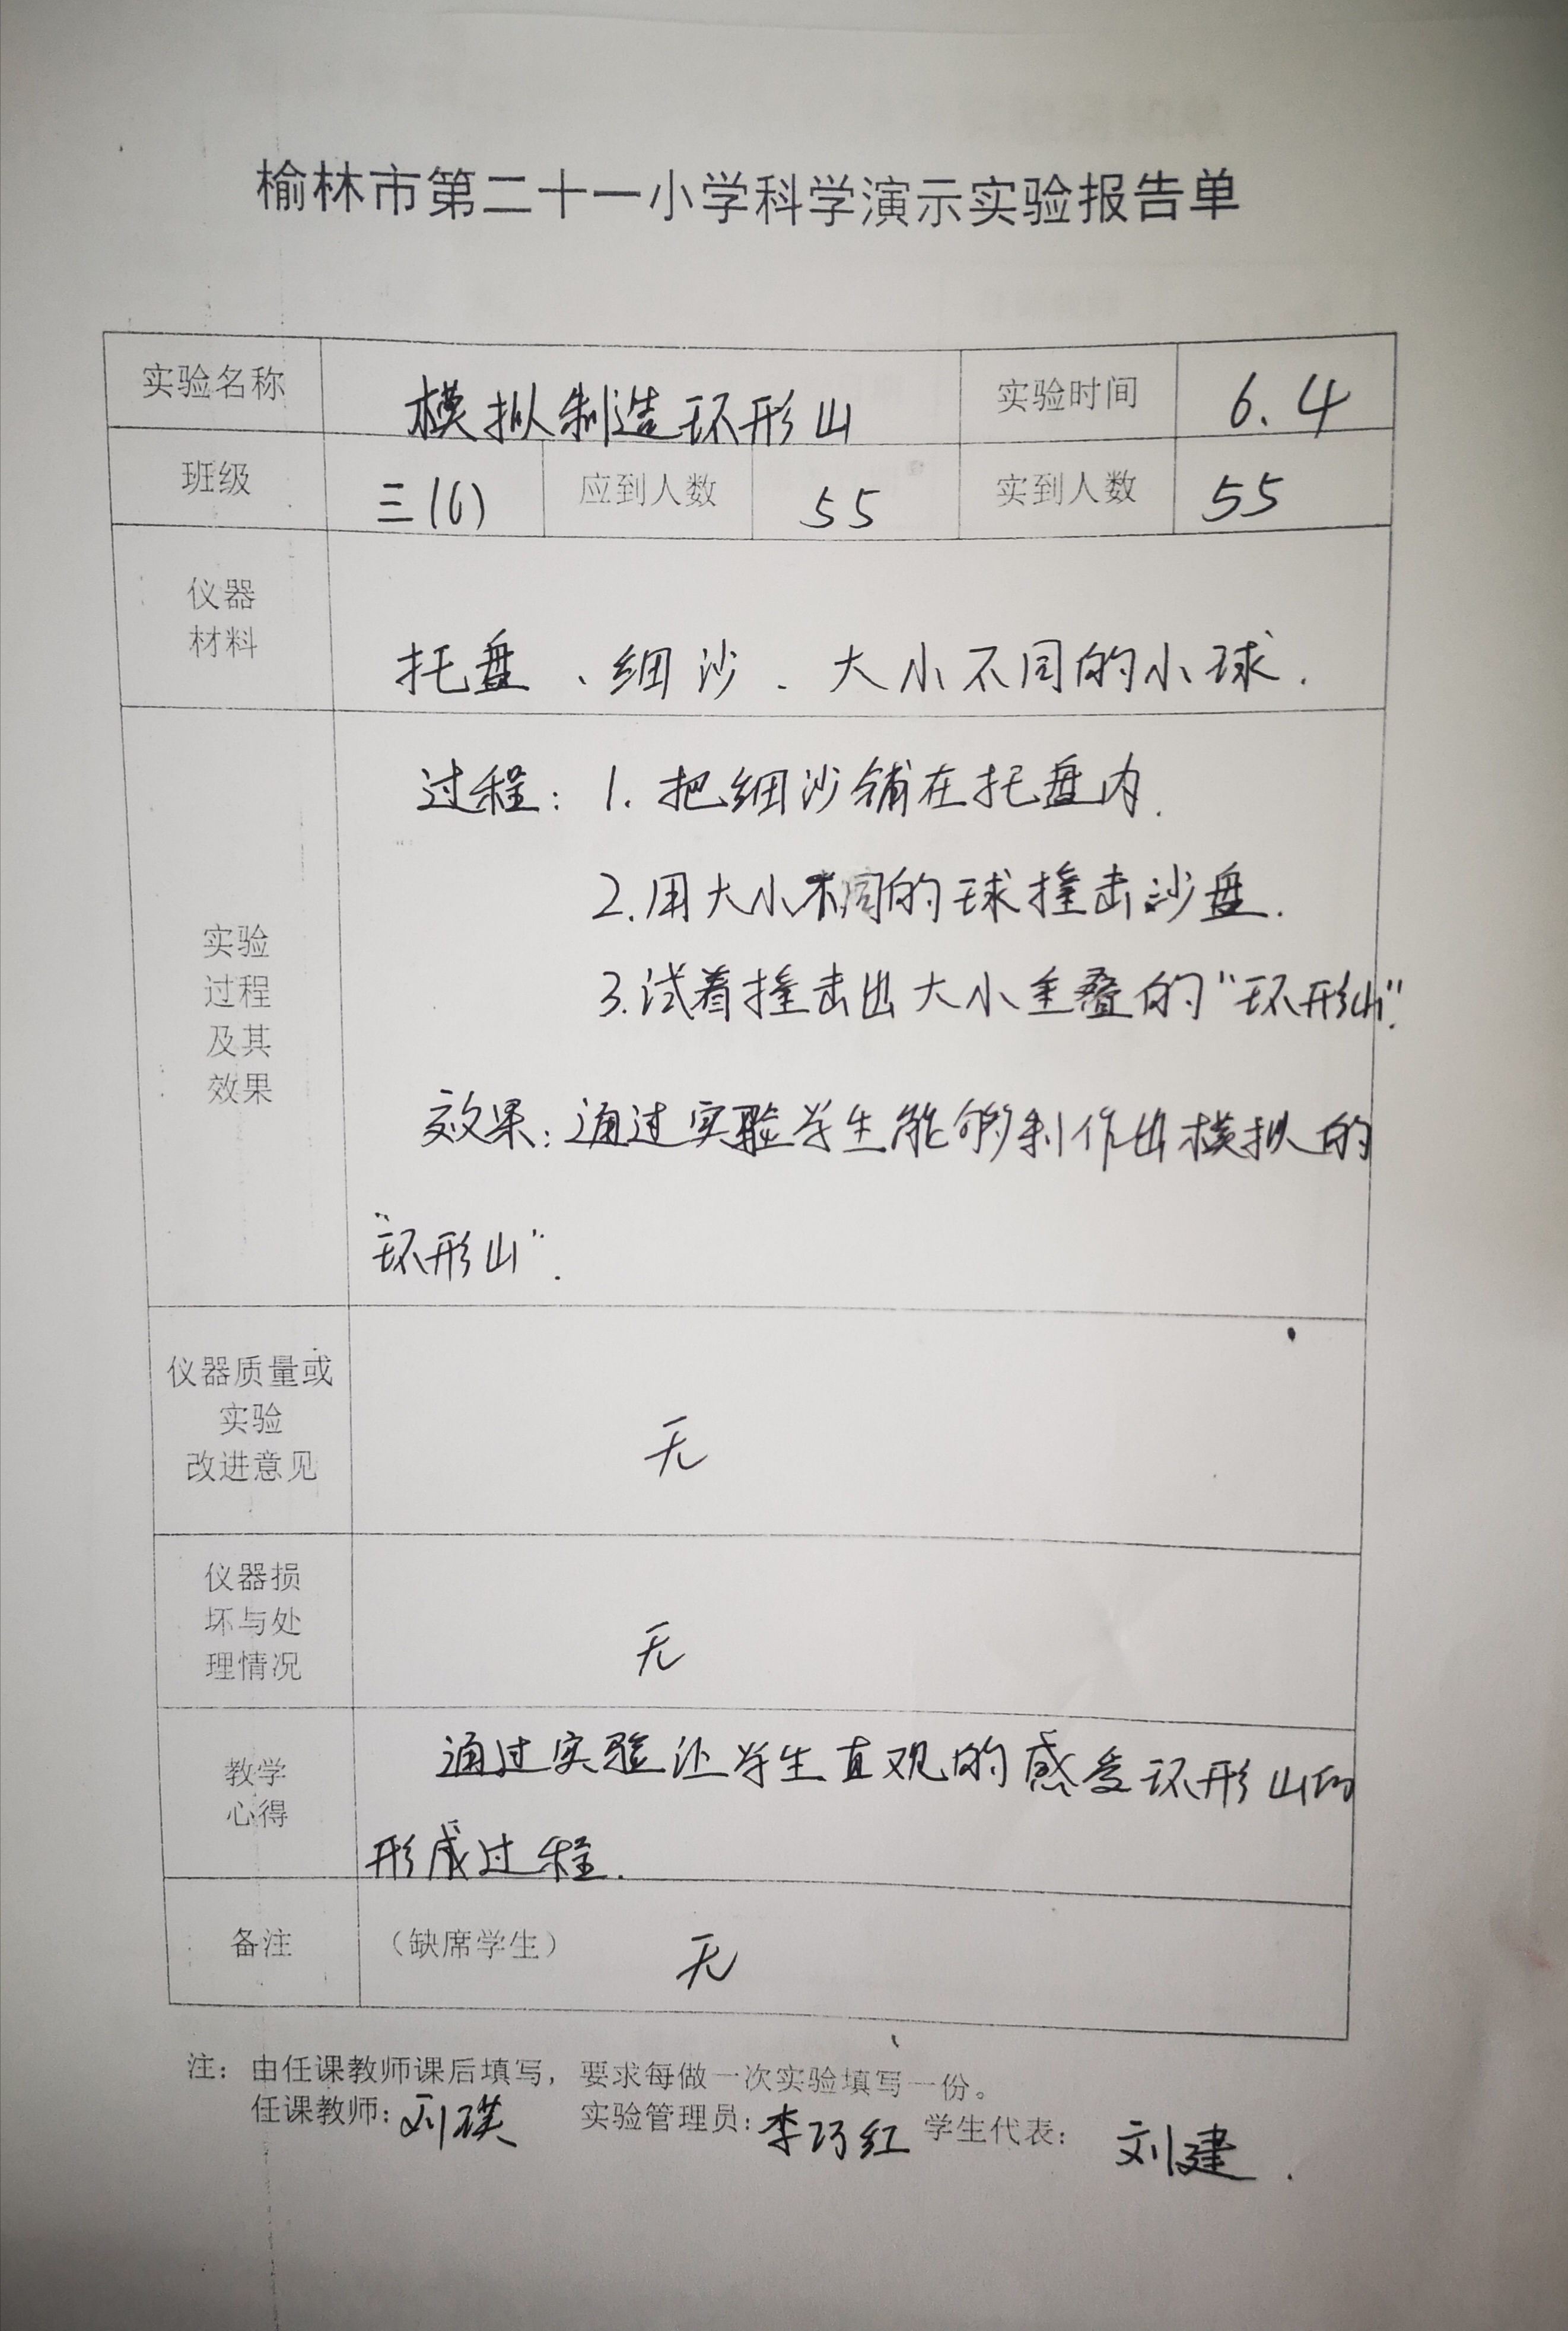 榆林市第二十一小学科学演示实验报告单
实验名称 模拟制造环形山 实验时间 6.4
班级 三(6) 应到人数 55 实到人数 55
仪器
材料
托盘、细沙、大小不同的小球.
过程：1. 把细沙铺在托盘内.
2.用大小不同的球撞击沙盘.
3.试着撞击出大小重叠的“环形山”.
实验
过程
及其
效果
效果：通过实验学生能够制作出模拟的
“环形山”.
仪器质量或
实验
改进意见
无
仪器损
坏与处
理情况
无
教学
心得
通过实验让学生直观的感受环形山的
形成过程.
备注 （缺席学生） 无
注：由任课教师课后填写，要求每做一次实验填写一份。
任课教师：刘祺 实验管理员：李巧红 学生代表： 刘建.